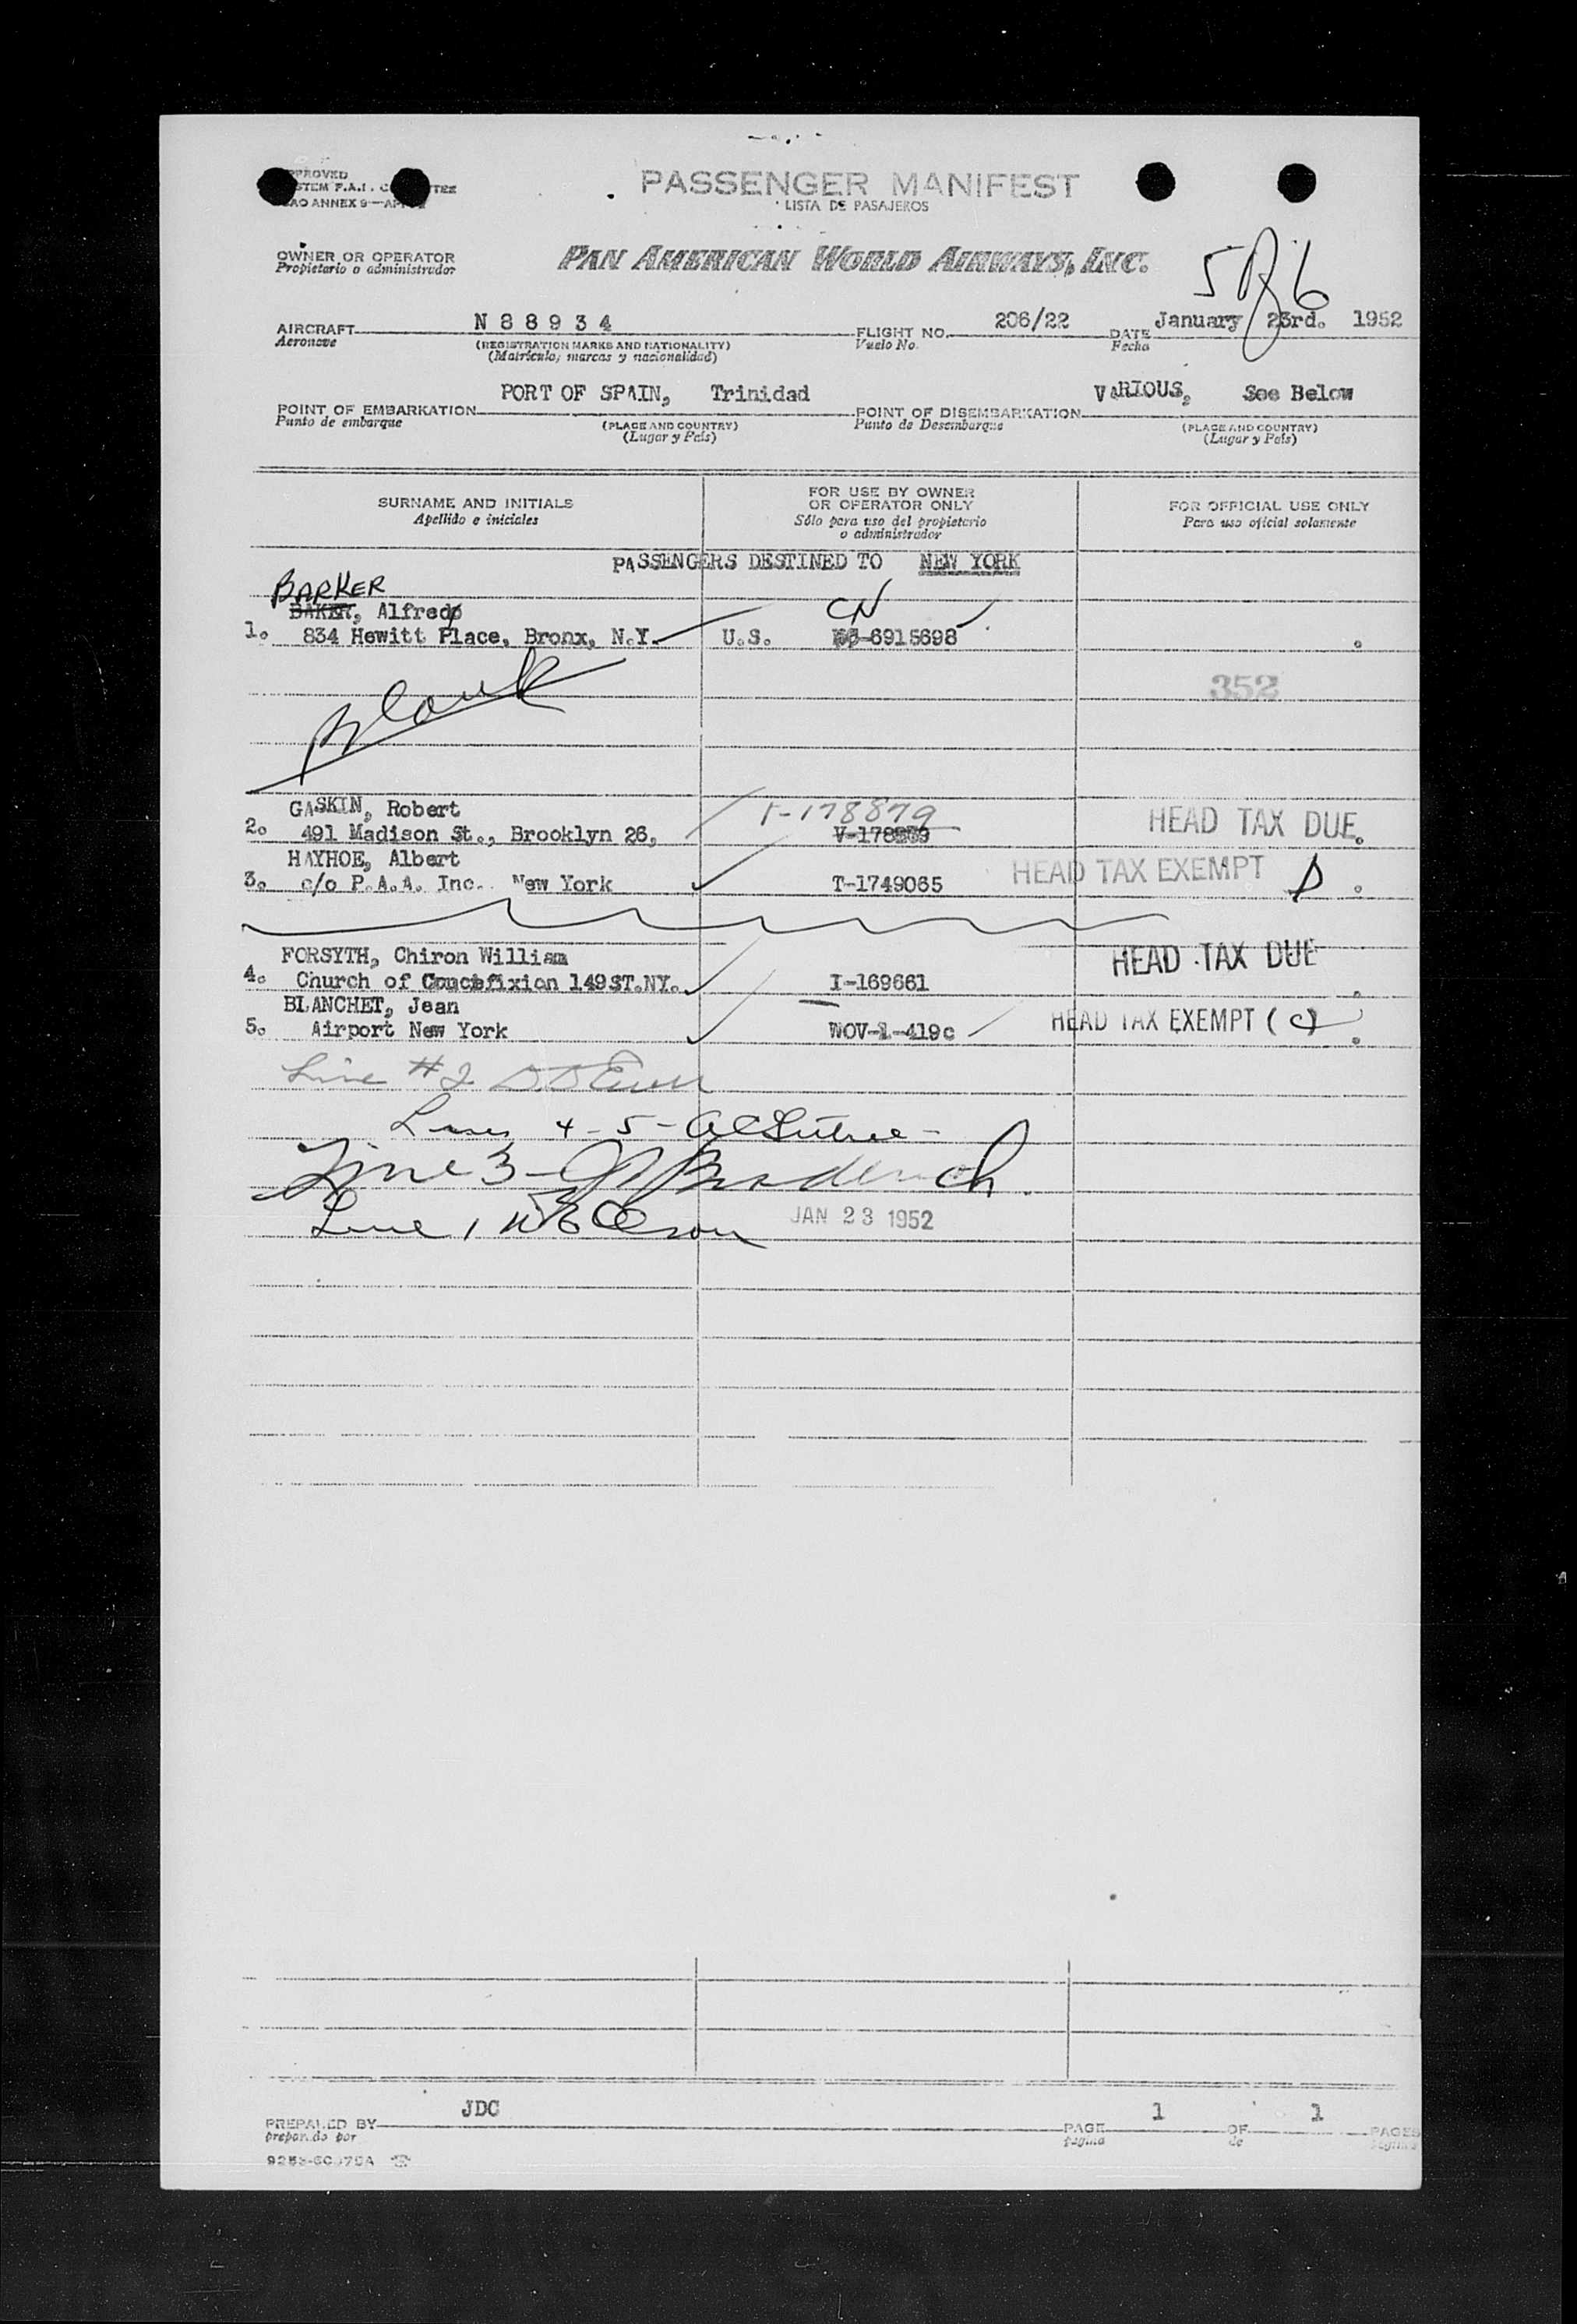 PASSENGER MANIFEST
LISTA DE PASAJEROS
ANNEX 9
OWNER OR OPERATOR
Propietario o administrador
PAN AMERICAN WORLD AIRWAYS, INC.
AIRCRAFT N 8 8 9 3 4 FLIGHT NO. 206/22 DATE January 23rd. 1952
Aeronave (REGISTRATION MARKS AND NATIONALITY) Vuelo No. Fecha
(Matrícula, marcas y nacionalidad)
PORT OF SPAIN, Trinidad VARIOUS, See Below
POINT OF EMBARKATION POINT OF DISEMBARKATION
Punto de embarque (PLACE AND COUNTRY) Punto de Desembarque (PLACE AND COUNTRY)
(Lugar y País) (Lugar y País)
SURNAME AND INITIALS FOR USE BY OWNER OR OPERATOR ONLY FOR OFFICIAL USE ONLY
Apellido e iniciales Sólo para uso del propietario o administrador Para uso oficial solamente
PASSENGERS DESTINED TO NEW YORK
BARKER
BAKER, Alfredo CN
1. 834 Hewitt Place, Bronx, N.Y. U.S. 6915698
352
Blank
GASKIN, Robert 178879 HEAD TAX DUE
2. 491 Madison St., Brooklyn 26,
HAYHOE, Albert HEAD TAX EXEMPT
3. c/o P.A.A. Inc. New York T-1749065
FORSYTH, Chiron William HEAD TAX DUE
4. Church of 149ST.NY. I-169661
BLANCHET, Jean HEAD TAX EXEMPT (c)
5. Airport New York WOV-1-419c
Line #2
Lines 4-5-
Line 3-
Line 1 JAN 23 1952
PREPARED BY JDC PAGE 1 OF 1 PAGES
preparado por página de